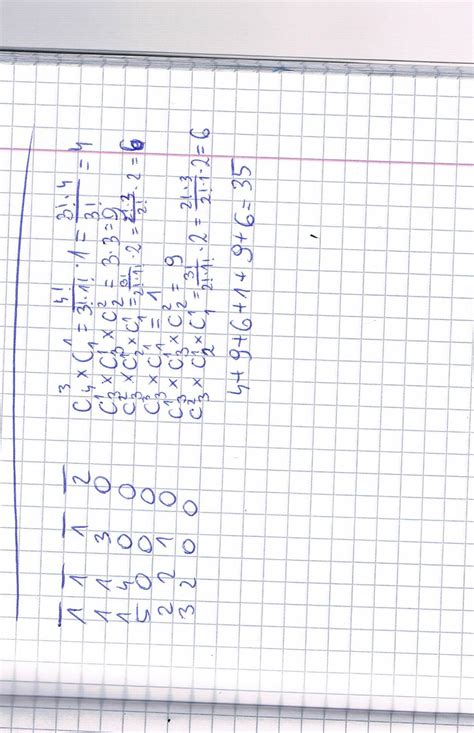 1 1 1 2
1 1 3 0
1 4 0 0
5 0 0 0
2 2 1 0
3 2 0 0
C₄³ × C₁¹ = 4!/3!·1! · 1 = 3!·4/3! = 4
C₃¹ × C₃¹ × C₂² = 3·3 = 9
C₃² × C₂¹ × C₁¹ = 3!/2!·1! · 2 = 2!·3/2! · 2 = 6
C₃³ × C₁¹ = 1
C₃¹ × C₃¹ × C₂² = 9
C₃² × C₂¹ × C₁¹ = 3!/2!·1! · 2 = 2!·3/2!·1 · 2 = 6
4+9+6+1+9+6=35